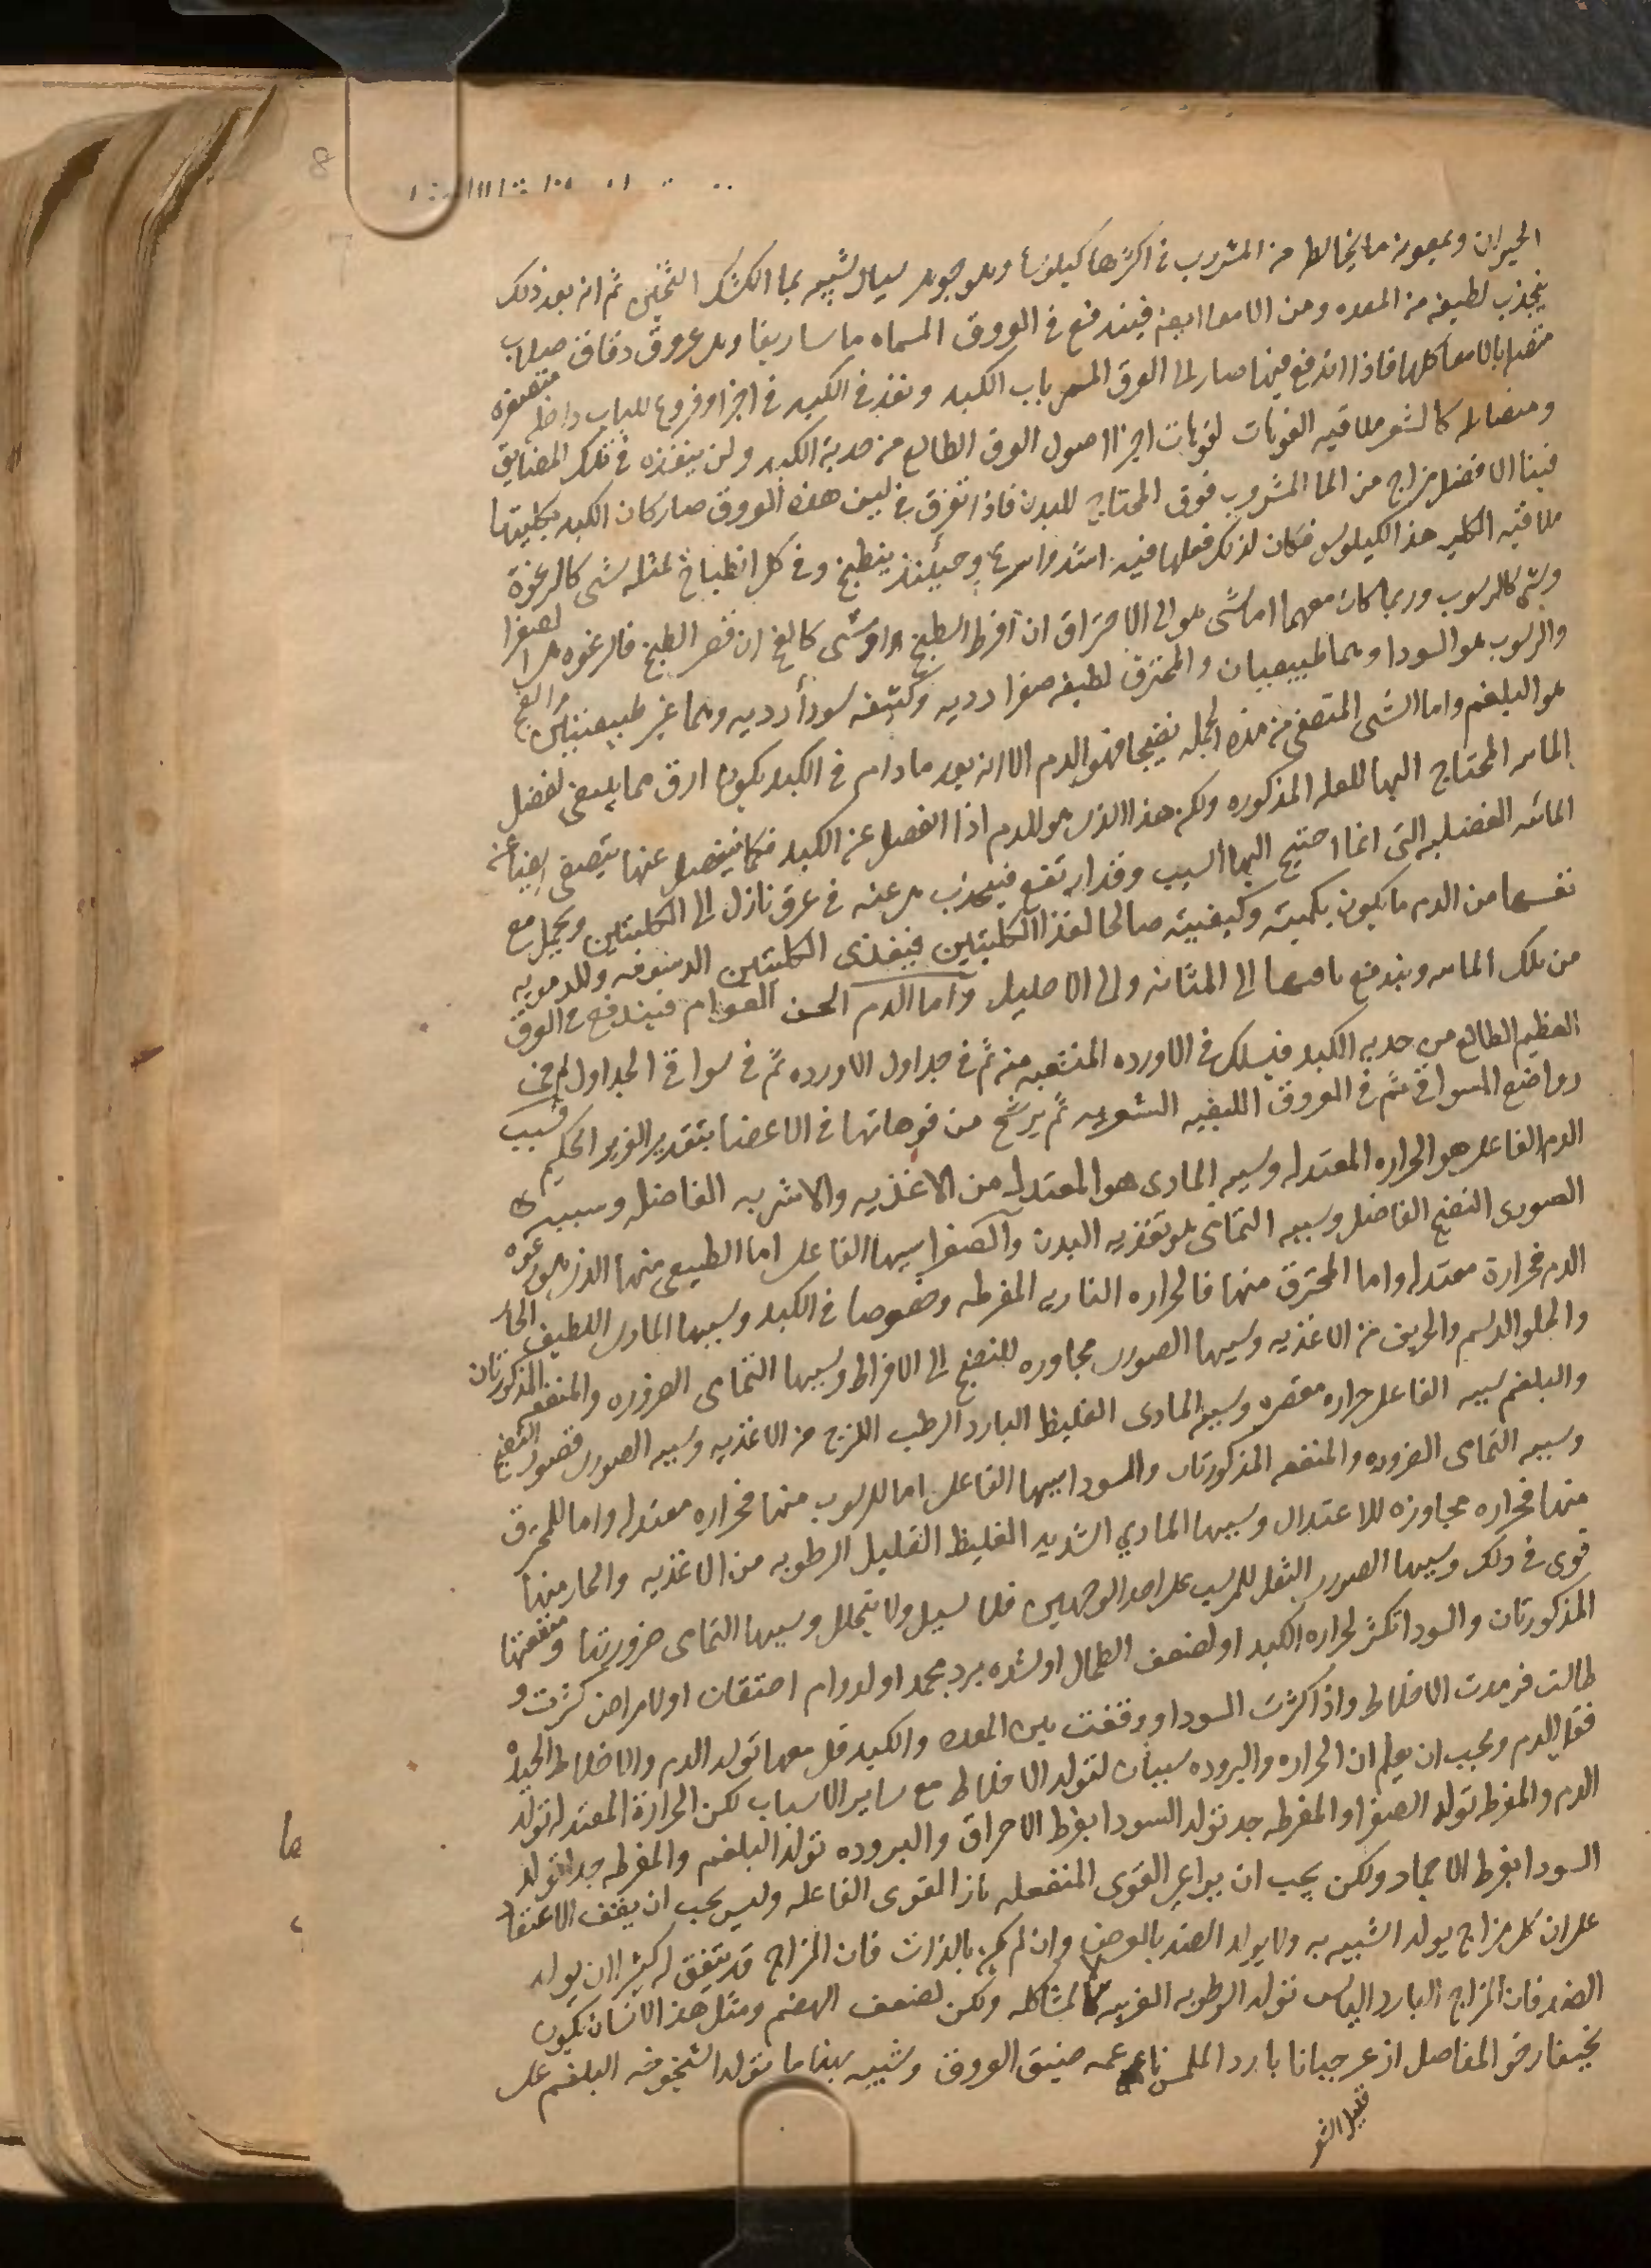 الحيوان وبمعونة ما يخالط من المشروب في اكثرها كيلوسا وهو جوهر سيال شبيه بماء الكشك الثخين ثم انه بعد ذلك
ينجذب لطيفه من المعده ومن الامعا ايضا فيندفع في العروق المسماه ماساريقا وهي عروق دقاق صلاب
متصله بالامعا كلها فاذا اندفع فيها صار الى العرق المسمى باب الكبد ونفذ في الكبد في اجزا وفروع للباب داخله متصغره
ومتضايله كالشعر ملاقيه الفوهات لفوهات اجزا اصول العرق الطالع من حدبة الكبد ولن ينفذه في تلك المضايق
فينا الا فضل مزاج من الما المشروب فوق المحتاج للبدن فاذا تفرق في ليف هذه العروق صار كان الكبد بكليتها
ملاقيه لكليه هذا الكيلوس فكان لذلك فعلها فيه اشد واسرع وحينئذ ينطبخ وفي كل انطباخ لمثله شي كالرغوة
وشي كالرسوب وربما كان معهما اما شي هو الى الاحتراق ان افرط الطبخ او شي كالفج ان قصر الطبخ فالرغوه هي الصفرا
والرسوب هو السودا وهما طبيعيان والمحترق لطيفه صفرا رديه وكثيفه سودا رديه وهما غير طبيعيتين والفج
هو البلغم واما الشي المتصفى من هذه الجمله نضيجا فهو الدم الا انه بعد مادام في الكبد يكون ارق مما ينبغي لفضل
المائيه المحتاج اليها للعله المذكوره ولكن هذا الذي هو للدم اذا انفصل عن الكبد فكما ينفصل عنها يتصفى ايضا عن
المائيه الفضليه التي انما احتيج اليها لسبب وقد ارتفع فينجذب هي عنه في عرق نازل الى الكليتين ويحمل مع
نفسها من الدم ما يكون بكميته وكيفيته صالحا لغذا الكليتين فيغذى الكليتين الدسومه والدمويه
من تلك المائيه ويندفع باقيها الى المثانه والى الاحليل واما الدم الحسن القوام فيندفع في العرق
العظيم الطالع من حدبه الكبد فيسلك في الاورده المنشعبه منه ثم في جداول الاورده ثم في سواقي الجداول ثم في
رواضع السواقي ثم في العروق الليفيه الشعريه ثم يرشح من فوهاتها في الاعضا بتقدير العزيز الحكيم فسبب
الدم الفاعلي هو الحراره المعتدله وسببه المادي هو المعتدل من الاغذيه والاشربه الفاضله وسببه
الصوري النضج الفاضل وسببه التمامي هو تغذيه البدن والصفرا سببها الفاعلي اما الطبيعي منها الذي هو رغوه
الدم فحرارة معتدله واما المحترق منها فالحراره الناريه المفرطه وخصوصا في الكبد وسببها المادي اللطيف الحار
والحلو الدسم والحريف من الاغذيه وسببها الصوري مجاوره للنضج الى الافراط وسببها التمامي الضروره والمنفعه المذكورتان
والبلغم سببه الفاعلي حراره مقصره وسببه المادي الغليظ البارد الرطب اللزج من الاغذيه وسببه الصوري قصور النضج
وسببه التمامي الضروره والمنفعه المذكورتان والسودا سببها الفاعلي اما للرسوب منها فحراره معتدله واما للمحترق
منها فحراره مجاوزه للاعتدال وسببها المادي الشديد الغليظ القليل الرطوبه من الاغذيه والحار منها
قوي في ذلك وسببها الصوري الثفل المرسب على احد الوجهين فلا يسيل ولا يتحلل وسببها التمامي ضرورتها ومنفعتها
المذكورتان والسودا تكثر لحراره الكبد او لضعف الطحال او لشده برد مجمد او لدوام احتقان او لامراض كثرت و
طالت فرمدت الاخلاط واذا كثرت السودا ووقفت بين المعده والكبد قل معها تولد الدم والاخلاط الجيده
فقل الدم ويجب ان يعلم ان الحراره والبروده سببان لتولد الاخلاط مع ساير الاسباب لكن الحرارة المعتدله تولد
الدم والمفرط تولد الصفرا والمفرطه جدا تولد السودا بفرط الاحراق والبروده تولد البلغم والمفرطه جدا تولد
السودا بفرط الاجماد ولكن يجب ان يراعى القوى المنفعله بازا القوى الفاعله وليس يجب ان يقف الاعتقاد
على ان كل مزاج يولد الشبيه به ولا يولد الضد بالعرض وان لم يكن بالذات فان المزاج قد يتفق له كثيرا ان يولد
الضد فان المزاج البارد اليابس تولد الرطوبه الغريبه لا لمشاكله ولكن لضعف الهضم ومثل هذا الانسان يكون
نحيفا رخو المفاصل ازعر جبانا بارد الملمس ناعمه ضيق العروق وشبيه بهذا ما تولد الشيخوخه البلغم على
قليل الشعر